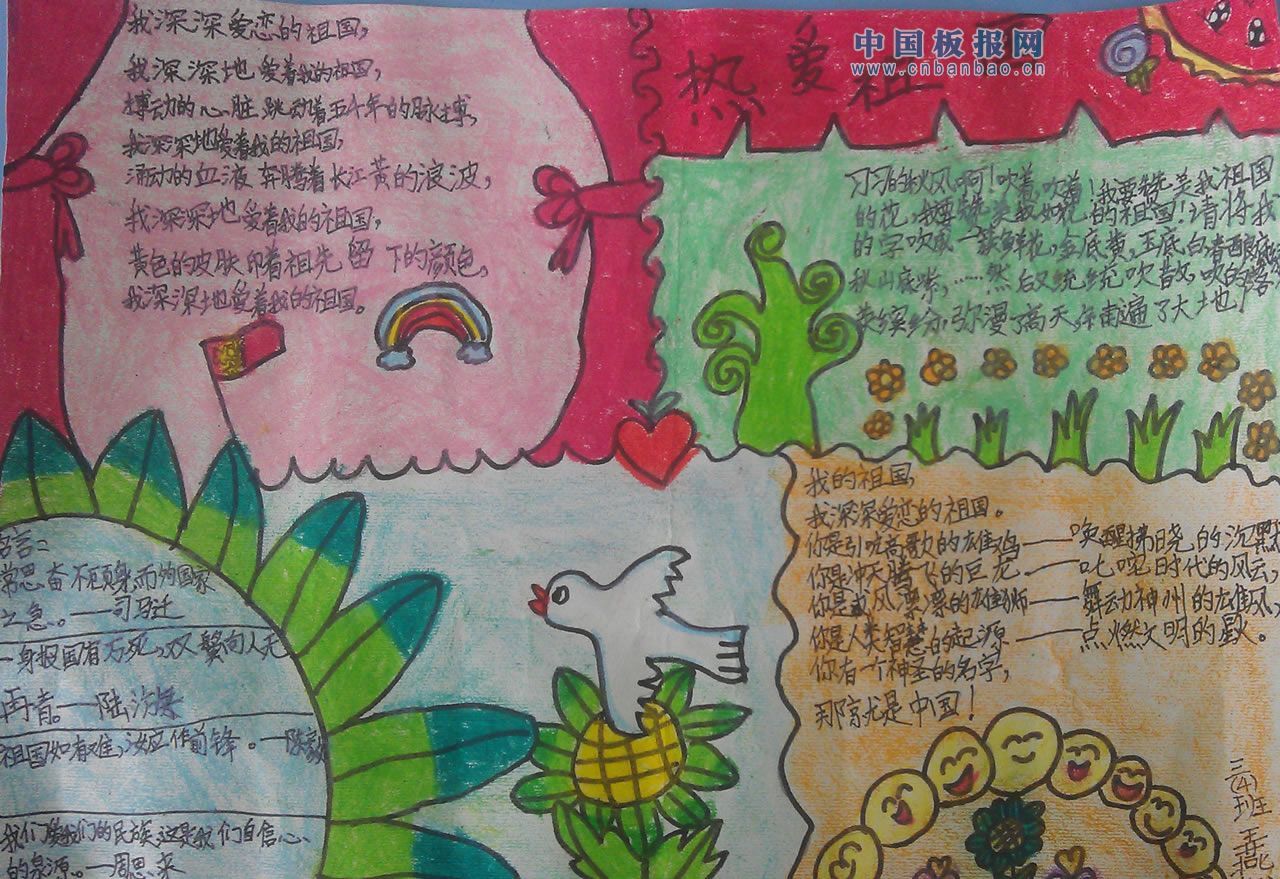 我深深爱恋的祖国,
我深深地爱着我的祖国,
搏动的心脏跳动着五十年的脉搏,
我深深地爱着我的祖国,
涌动的血液奔腾着长江黄的浪波,
我深深地爱着我的祖国,
黄色的皮肤印着祖先留下的颜色,
我深深地爱着我的祖国。
热爱祖
中国板报网
www.cnbanbao.cn
习习的秋风啊!吹着,吹着!我要赞美我祖国
的花,我要赞美我如花的祖国!请将我
的字吹成一簇鲜花,金底黄,玉底白,春
秋山底紫,……然后又统统吹散,吹的
英缤纷,弥漫了高天,铺遍了大地!
名言:
常思奋不顾身,而殉国家
之急。——司马迁
一身报国有万死,双鬓向人无
再青。——陆游
祖国如有难,汝应作前锋。—陈毅
我们爱我们的民族,这是我们自信心
的泉源。—周恩来
我的祖国,
我深深爱恋的祖国。
你是引吭高歌的雄鸡——唤醒拂晓的沉默
你是冲天腾飞的巨龙——叱咤时代的风云,
你是威风凛凛的雄狮——舞动神州的雄风,
你是人类智慧的起源——点燃文明的星火。
你有一个神圣的名字,
那就是中国!
三(4)班